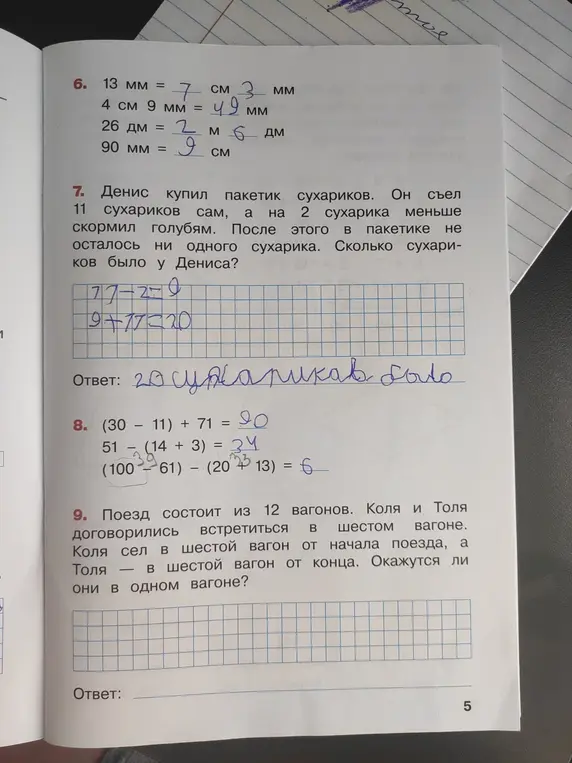 6. 13 мм = 1 см 3 мм
4 см 9 мм = 49 мм
26 дм = 2 м 6 дм
90 мм = 9 см
7. Денис купил пакетик сухариков. Он съел
11 сухариков сам, а на 2 сухарика меньше
скормил голубям. После этого в пакетике не
осталось ни одного сухарика. Сколько сухари-
ков было у Дениса?
11-2=9
9+11=20
Ответ: 20 сухариков было
8. (30 – 11) + 71 = 90
51 – (14 + 3) = 34
39 33
(100 – 61) – (20 + 13) = 6
9. Поезд состоит из 12 вагонов. Коля и Толя
договорились встретиться в шестом вагоне.
Коля сел в шестой вагон от начала поезда, а
Толя — в шестой вагон от конца. Окажутся ли
они в одном вагоне?
Ответ:
5